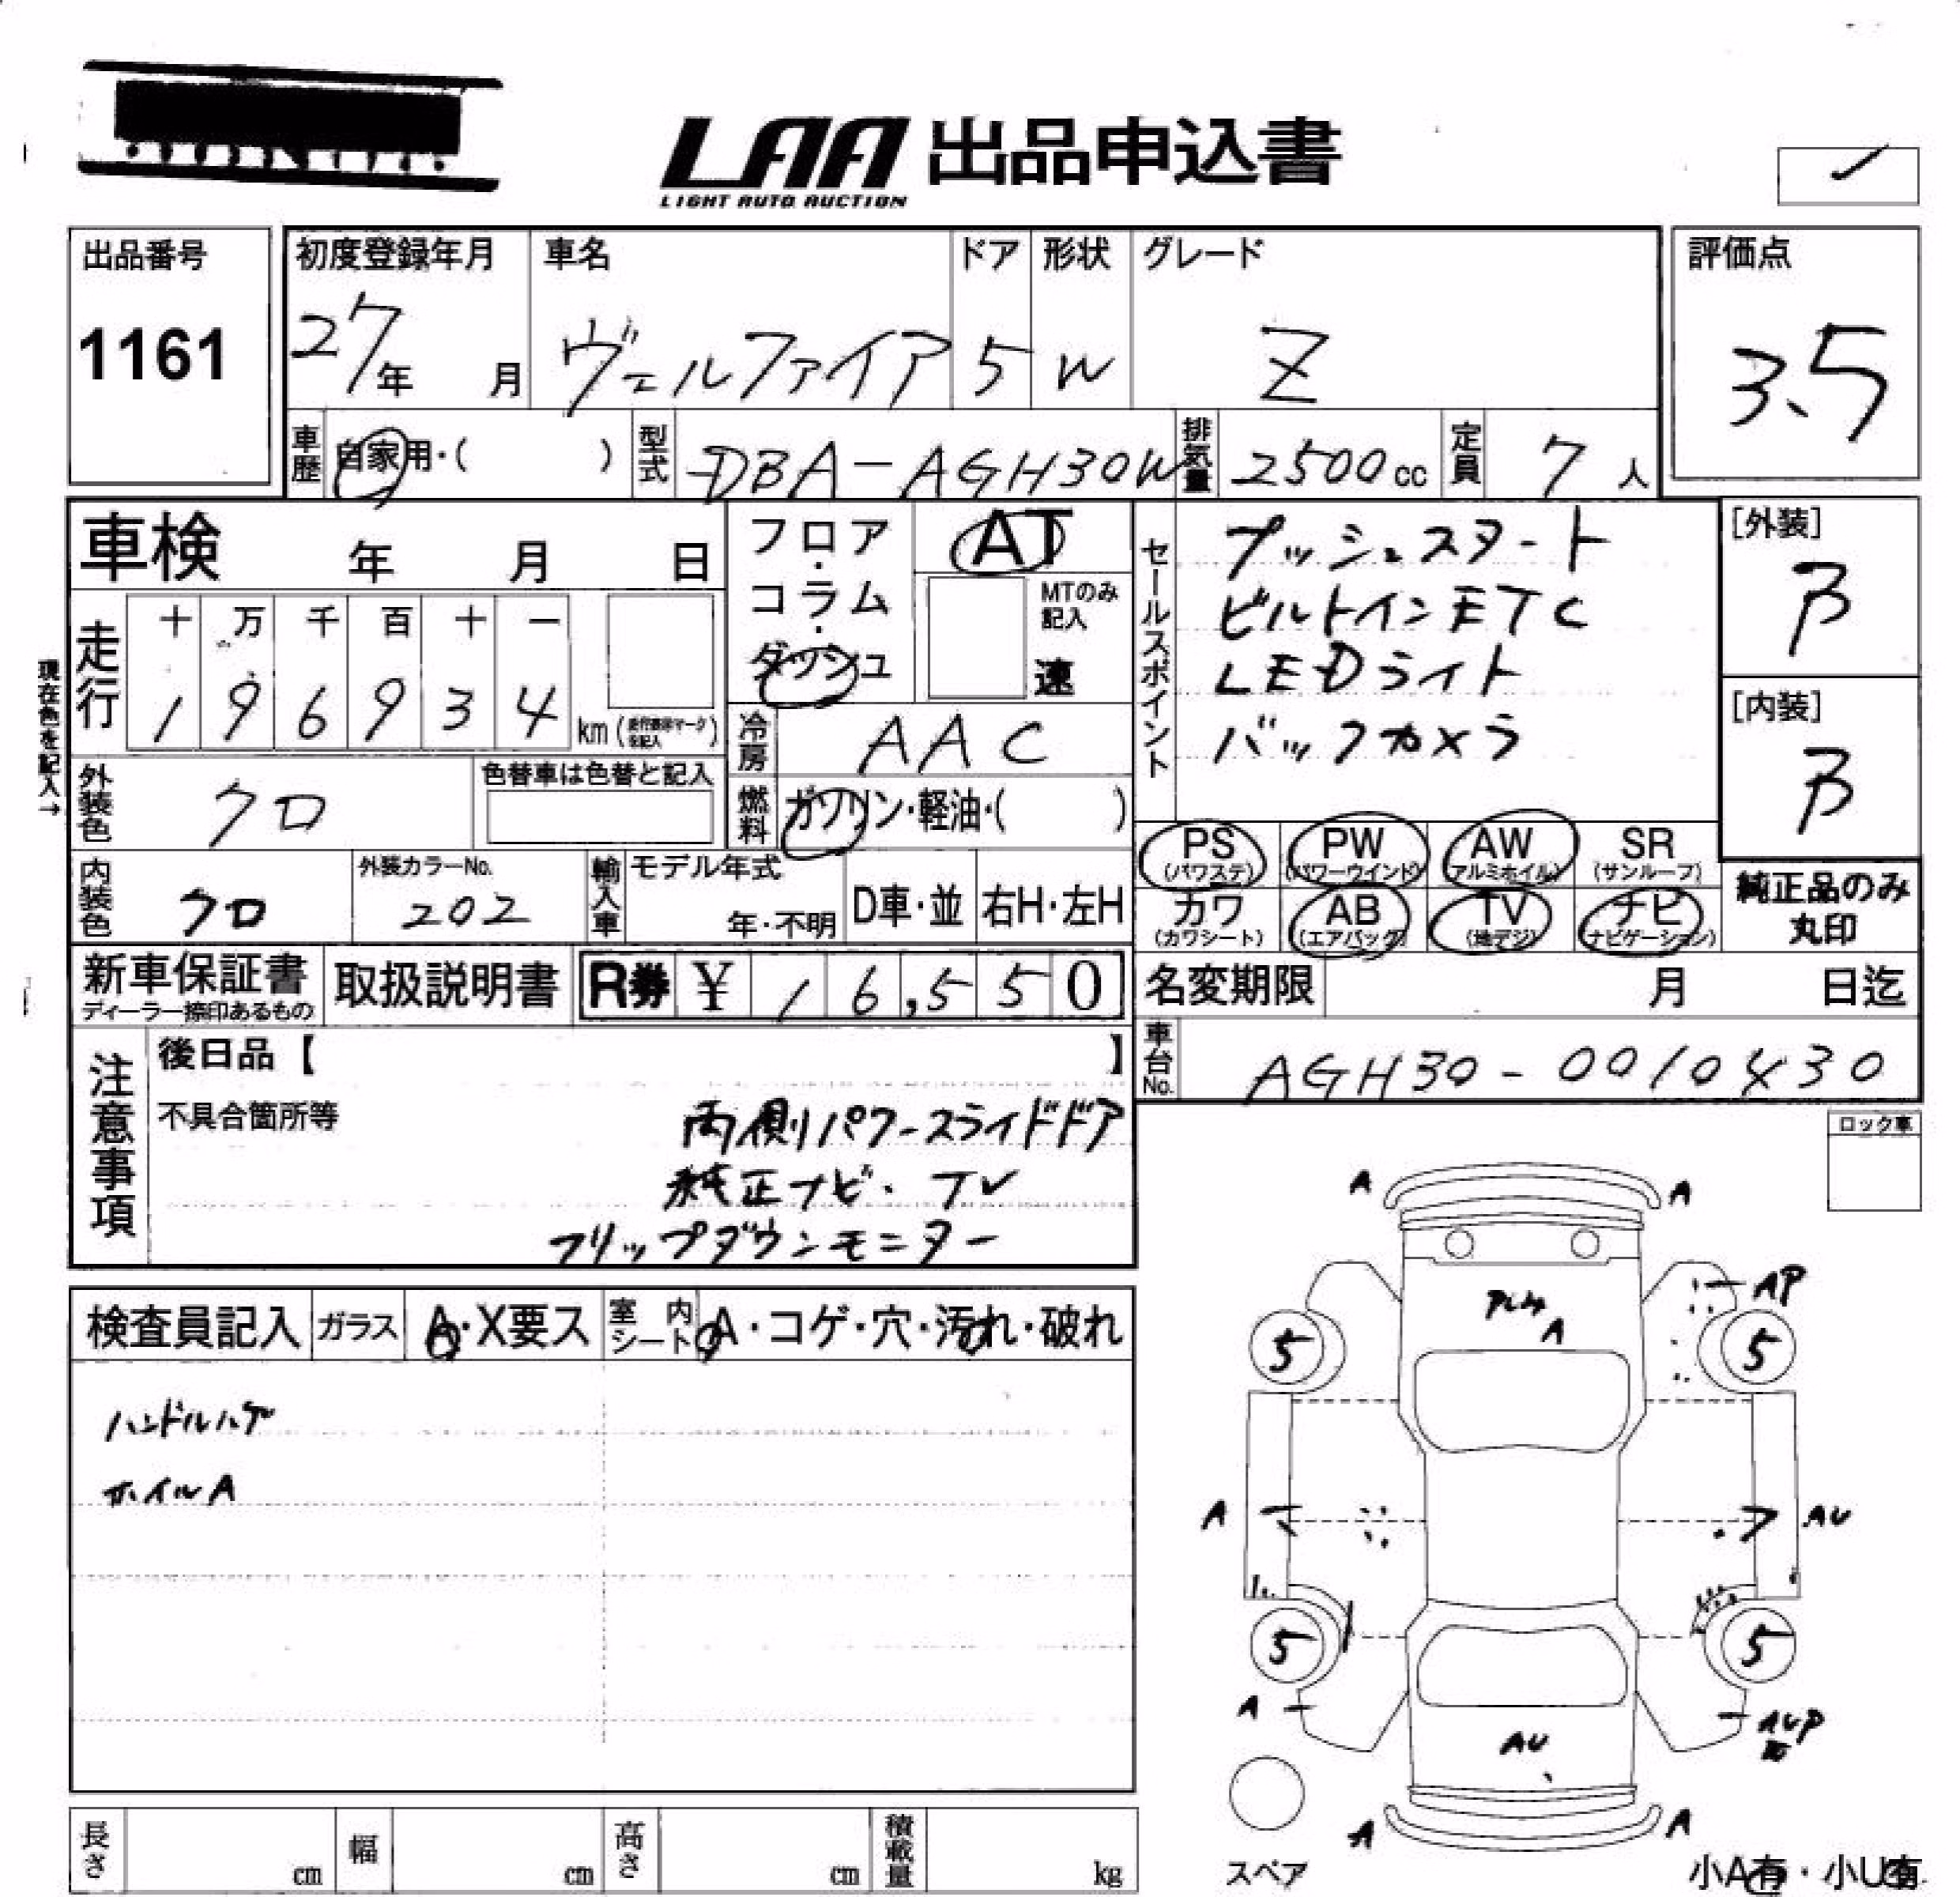 LAA 出品申込書
LIGHT AUTO AUCTION
出品番号
1161
初度登録年月 車名 ドア 形状 グレード
27年 月 ヴェルファイア 5 W Z
評価点
3.5
車歴 自家用・( ) 型式 DBA-AGH30W 排気量 2500cc 定員 7人
車検 年 月 日
フロア・コラム・ダッシュ
AT
MTのみ記入
速
セールスポイント
プッシュスタート
ビルトインETC
LEDライト
バックカメラ
[外装]
B
[内装]
B
現在色を記入→
走行
十 万 千 百 十 一
1 9 6 9 3 4 km
冷房 AAC
燃料 ガソリン・軽油・( )
外装色 クロ 色替車は色替と記入
内装色 クロ 外装カラーNo. 202
輸入車 モデル年式 年・不明 D車・並 右H・左H
PS (パワステ) PW (パワーウインド) AW (アルミホイル) SR (サンルーフ)
カワ (カワシート) AB (エアバッグ) TV (地デジ) ナビ (ナビゲーション)
純正品のみ丸印
新車保証書 ディーラー捺印あるもの 取扱説明書 R券 ¥ 16,550
名変期限 月 日迄
車台No. AGH30-0010430
注意事項
後日品【 】
不具合箇所等
両側パワースライドドア
純正ナビ・TV
フリップダウンモニター
ロック車
検査員記入 ガラス A・X要ス 室内シート A・コゲ・穴・汚れ・破れ
ハンドルハゲ
ホイルA
A A
AP
A
5 5
A AU
5 5
A AUP
AU
A A
スペア
小A有・小U有
長さ cm 幅 cm 高さ cm 積載量 kg